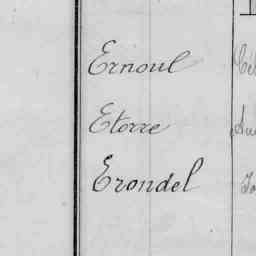 Ernoul
Etorre
Erondel